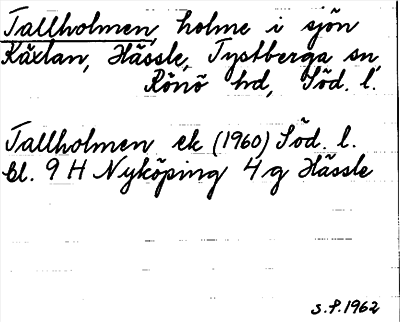 Tallholmen, holme i sjön
Käxlan, Hässle, Tystberga sn,
Rönö hd, Söd. l.
Tallholmen ek (1960) Söd. l.
bl. 9 H Nyköping 4 g Hässle
s.f. 1962